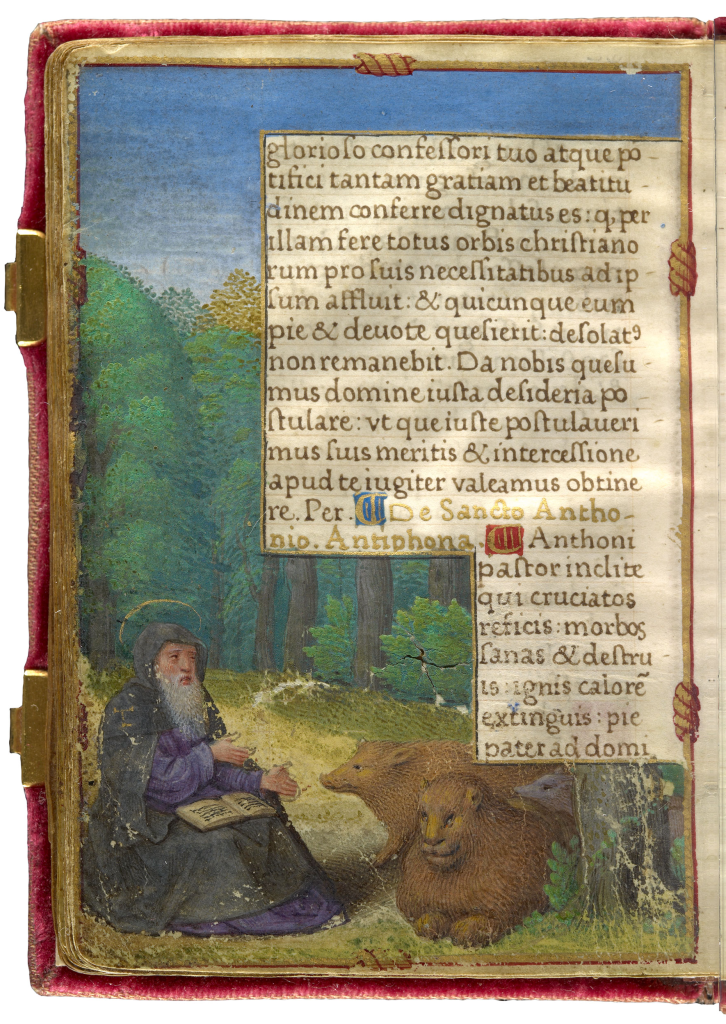 glorioſo confeſſori tuo atque po-
tifici tantam gratiam et beatitu-
dinem conferre dignatus es: q, per
illam fere totus orbis chriſtiano
rum pro ſuis neceſſitatibus ad ip-
ſum affluit: & quicunque eum
pie & deuote queſierit: deſolatꝰ
non remanebit. Da nobis queſu-
mus domine iuſta deſideria po-
ſtulare: vt que iuſte poſtulaueri
mus ſuis meritis & interceſſione
apud te iugiter valeamus obtine
re. Per. De Sancto Antho-
nio. Antiphona. Anthoni
paſtor inclite
qui cruciatos
reficis: morbos
ſanas & deſtru
is: ignis calorē
extinguis: pie
pater ad domi